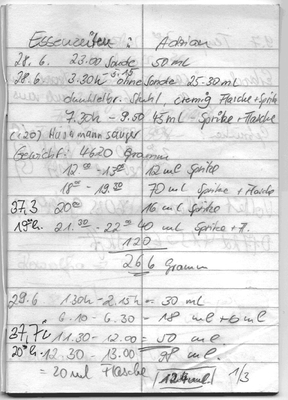 Essenzeiten : Adrian
28.6. 23.00 Sonde 50 ml
28.6. 3.30h - 3.45 ohne Sonde 25-30 ml
Stuhl, cremig Flasche + Spritze
7.30h - 9.50 45 ml - Spritze + Flasche
Gewicht: 4620 Gramm
12 ml Spritze
18 - 19.30 70 ml Spritze + Flasche
37,3 20 16 ml Spritze
19 h. 21.30 - 22 40 ml Spritze + F.
120
266 gramm
29.6 130h - 2.15h = 30 ml
6.10 - 6.30 - 18 ml
37,7 11.30 - 12.00 = 50 ml
20 h. 12.30 - 13.00 28 ml
= 20 ml Flasche 124 ml 1/3